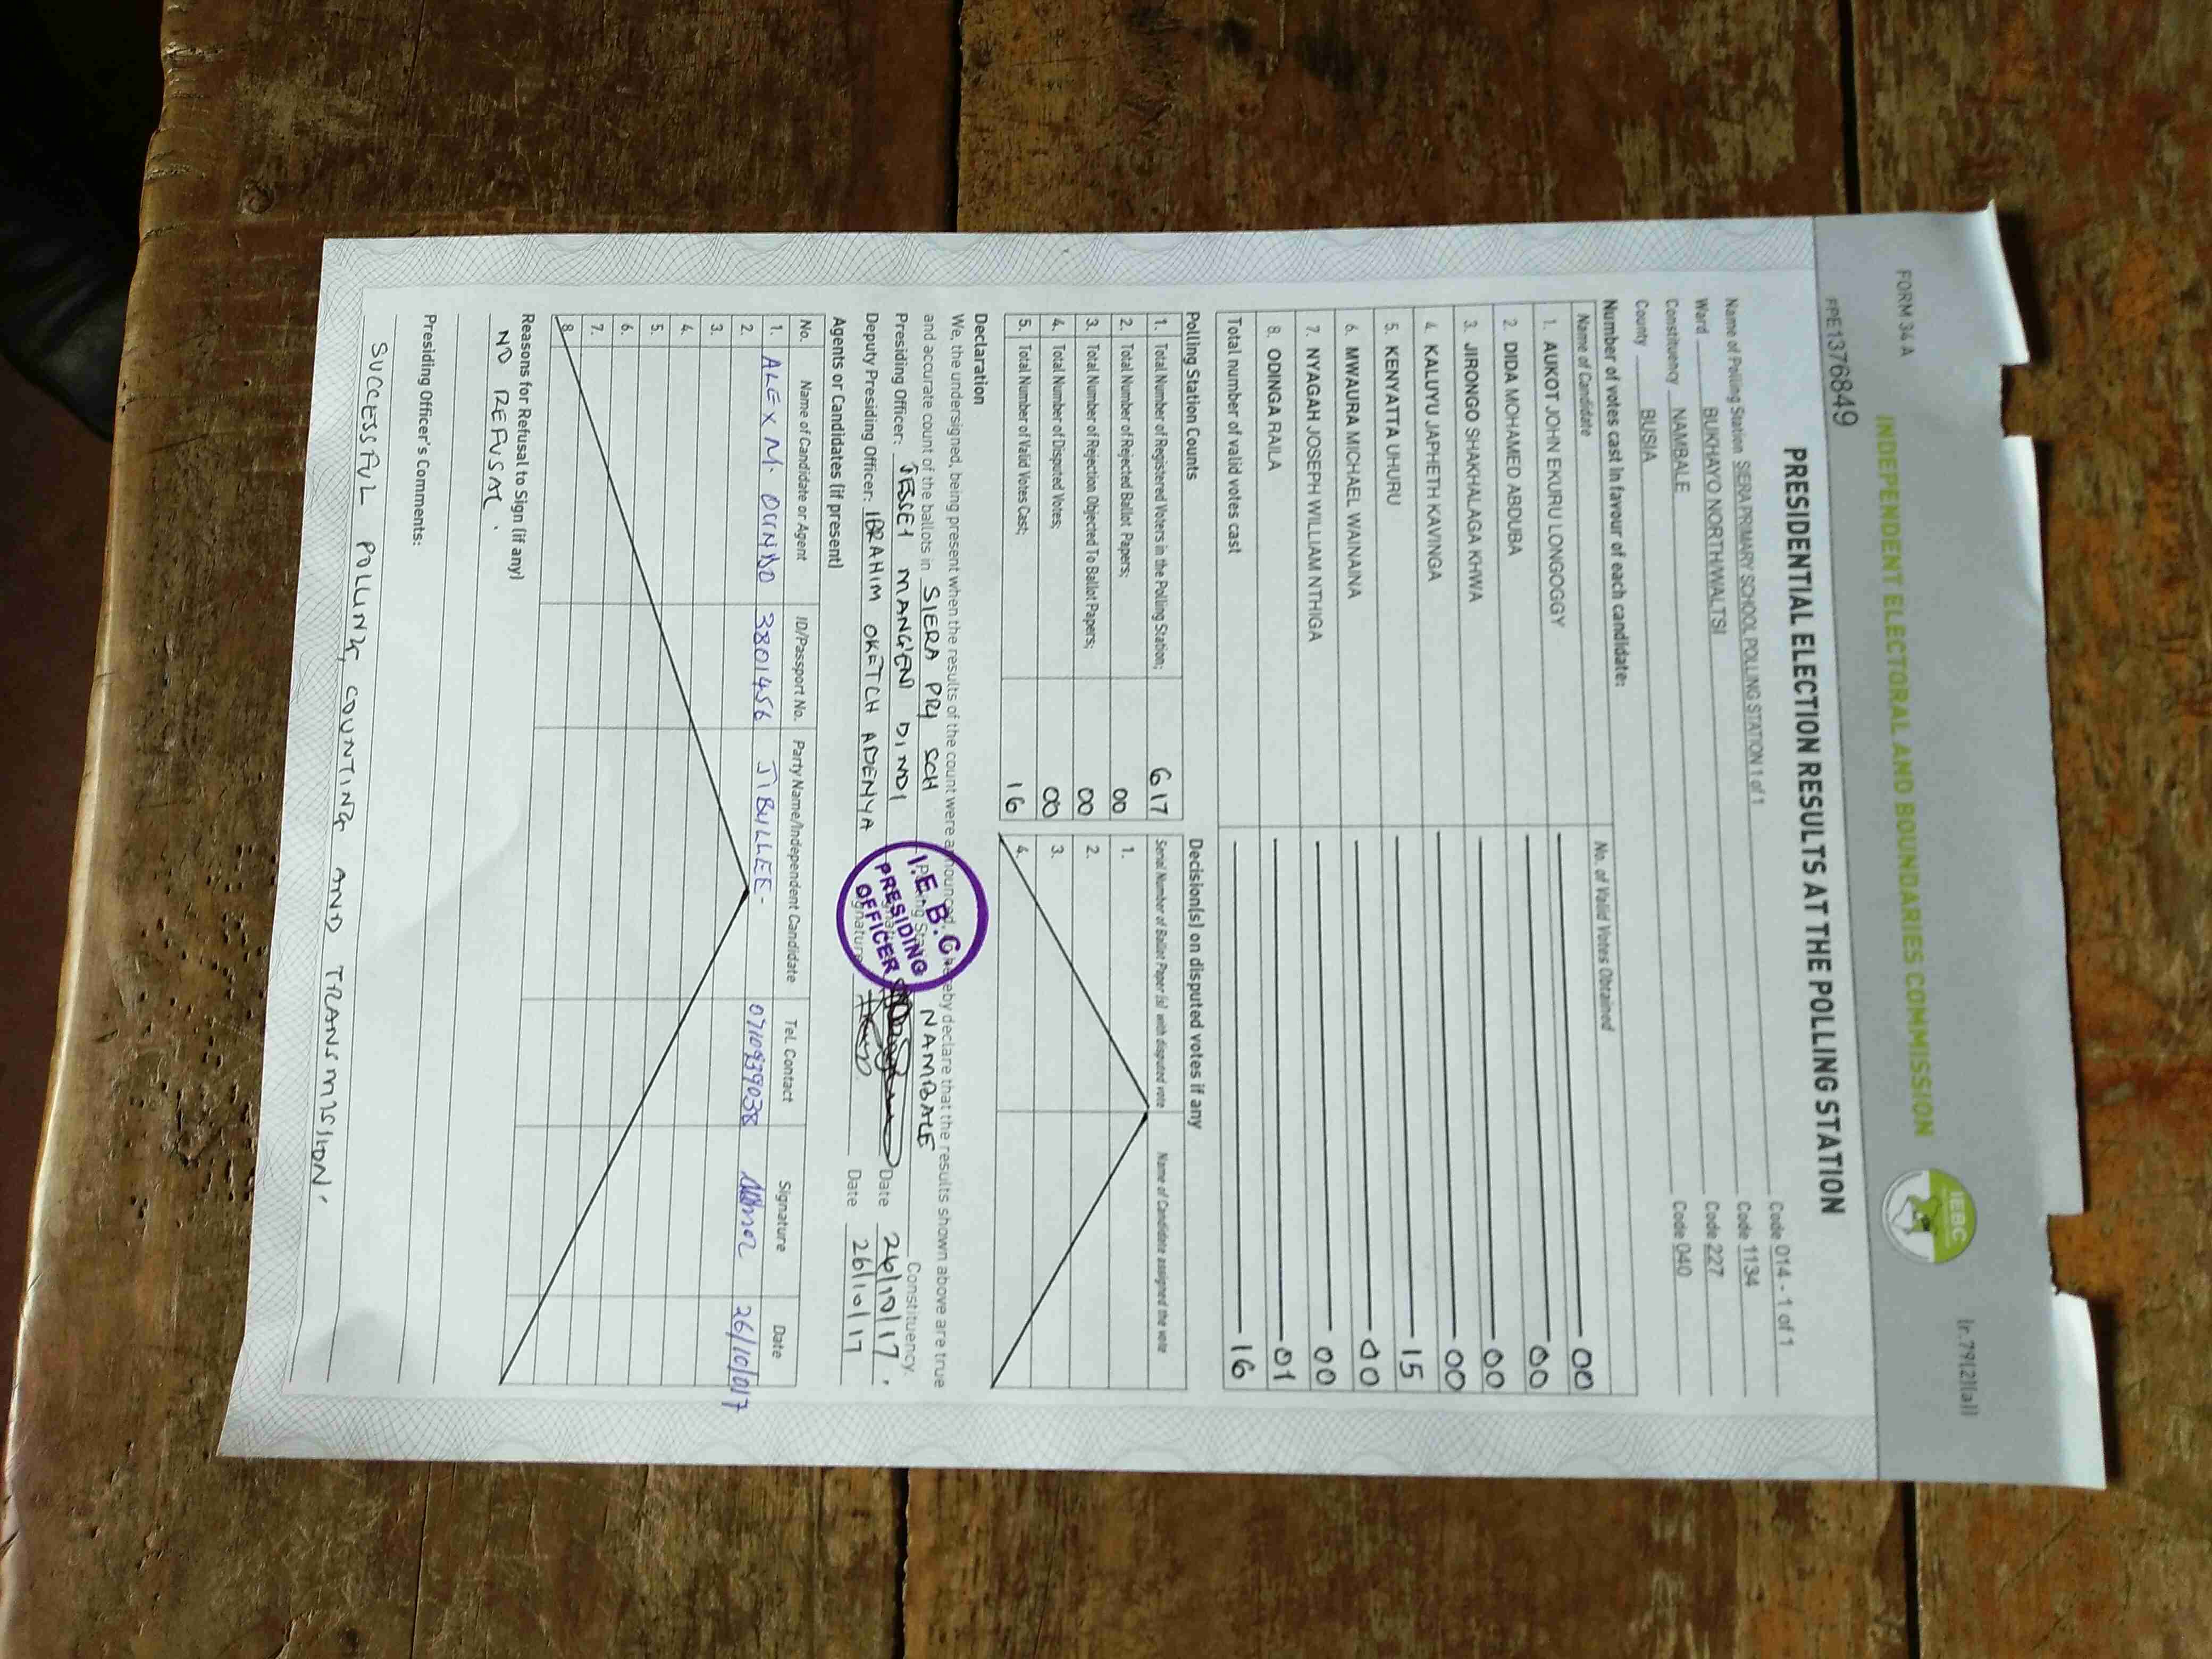 FORM 34 A
Ir.79(2)(a)
INDEPENDENT ELECTORAL AND BOUNDARIES COMMISSION
IEBC
FPE1376849
PRESIDENTIAL ELECTION RESULTS AT THE POLLING STATION
Name of Polling Station SIERA PRIMARY SCHOOL POLLING STATION 1 of 1 Code 014 - 1 of 1
Ward BUKHAYO NORTH/WALTSI Code 1134
Constituency NAMBALE Code 227
County BUSIA Code 040
Number of votes cast in favour of each candidate:
Name of Candidate No. of Valid Votes Obtained
1. AUKOT JOHN EKURU LONGOGGY 00
2. DIDA MOHAMED ABDUBA 00
3. JIRONGO SHAKHALAGA KHWA 00
4. KALUYU JAPHETH KAVINGA 00
5. KENYATTA UHURU 15
6. MWAURA MICHAEL WAINAINA 00
7. NYAGAH JOSEPH WILLIAM NTHIGA 00
8. ODINGA RAILA 01
Total number of valid votes cast 16
Polling Station Counts
1. Total Number of Registered Voters in the Polling Station; 617
2. Total Number of Rejected Ballot Papers; 00
3. Total Number of Rejection Objected To Ballot Papers; 00
4. Total Number of Disputed Votes; 00
5. Total Number of Valid Votes Cast; 16
Decision(s) on disputed votes if any
Serial Number of Ballot Paper (s) with disputed vote Name of Candidate assigned the vote
1.
2.
3.
4.
Declaration
We, the undersigned, being present when the results of the count were announced, do hereby declare that the results shown above are true
and accurate count of the ballots in SIERA PRY SCH Polling Station NAMBALE Constituency.
Presiding Officer: JESSEY MANG'ENI DINDI Signature Date 26/10/17.
Deputy Presiding Officer: IBRAHIM OKETCH ADENYA Signature Date 26/10/17
I.E.B.C
PRESIDING
OFFICER
Agents or Candidates (if present)
No. Name of Candidate or Agent ID/Passport No. Party Name/Independent Candidate Tel. Contact Signature Date
1. ALEX M. OUNDO 3801456 JIBULLEE - 0710939038 26/10/017
2.
3.
4.
5.
6.
7.
8.
Reasons for Refusal to Sign (if any)
NO REFUSAL.
Presiding Officer's Comments:
SUCCESSFUL POLLING, COUNTING AND TRANSMISSION.